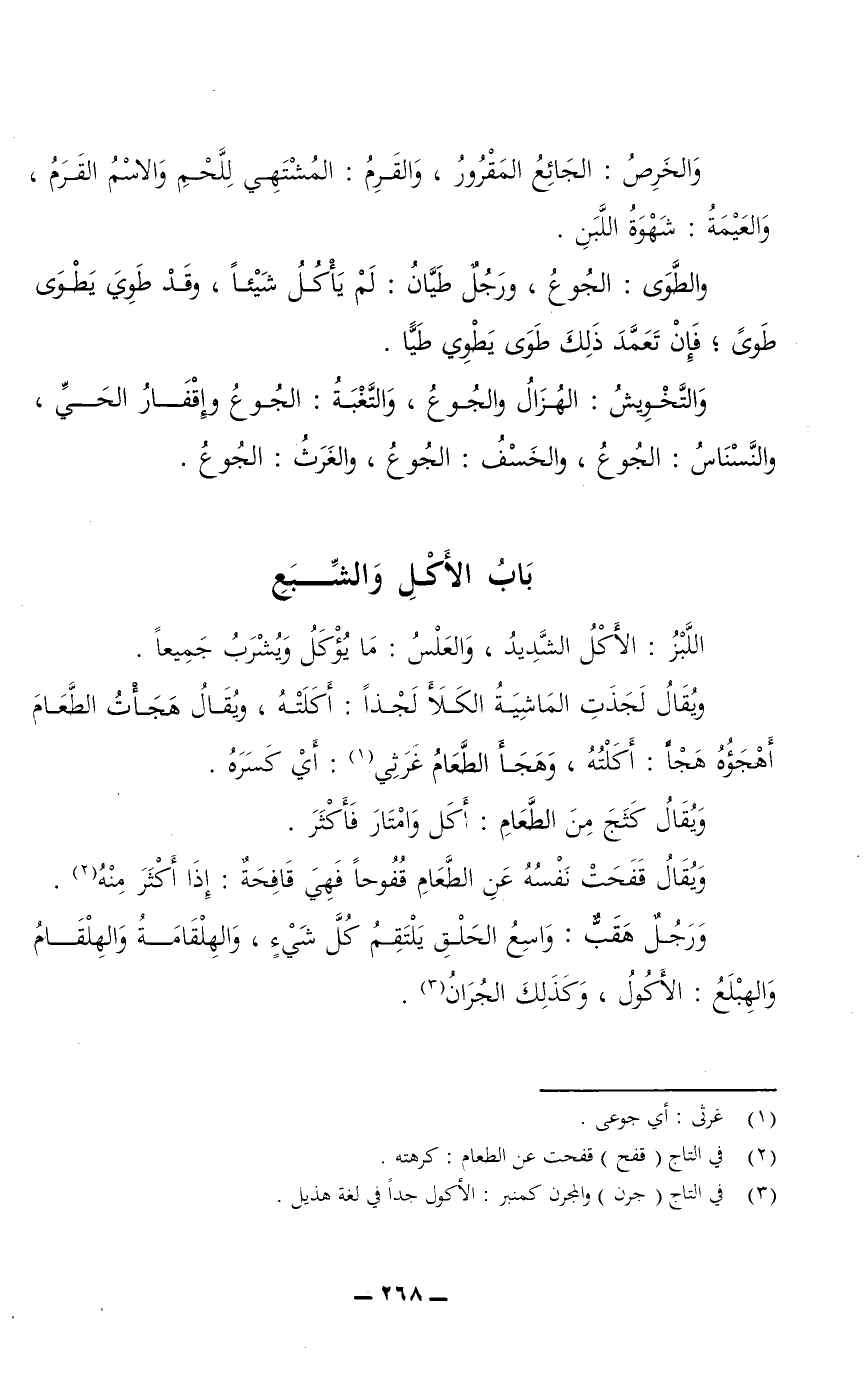 وَالخَرِصُ : الجَائِعُ المَقْرُورُ ، وَالقَرِمُ : المُشْتَهِي لِلَّحْمِ وَالاسْمُ القَرَمُ ،
وَالعَيْمَةُ : شَهْوَةُ اللَّبَنِ .
والطَّوَى : الجُوعُ ، ورَجُلٌ طَيَّانُ : لَمْ يَأْكُلْ شَيْئاً ، وقَدْ طَوِيَ يَطْوَى
طَوىً ؛ فَإِنْ تَعَمَّدَ ذَلِكَ طَوَى يَطْوِي طَيًّا .
وَالتَّخْوِيشُ : الهُزَالُ والجُوعُ ، وَالتَّغْبَةُ : الجُوعُ وإِقْفَارُ الحَيِّ ،
والنَّسْنَاسُ : الجُوعُ ، والخَسْفُ : الجُوعُ ، والغَرَثُ : الجُوعُ .
بَابُ الأَكْلِ وَالشِّبَعِ
اللَّبْزُ : الأَكْلُ الشَّدِيدُ ، وَالعَلْسُ : مَا يُؤْكَلُ وَيُشْرَبُ جَمِيعاً .
ويُقَالُ لَجَذَتِ المَاشِيَةُ الكَلَأَ لَجْذاً : أَكَلَتْهُ ، ويُقَالُ هَجَأْتُ الطَّعَامَ
أَهْجَؤُهُ هَجْأً : أَكَلْتُهُ ، وَهَجَأَ الطَّعَامُ غَرَثِي(١) : أَيْ كَسَرَهُ .
وَيُقَالُ كَثَجَ مِنَ الطَّعَامِ : أَكَل وَامْتَارَ فَأَكْثَرَ .
وَيُقَالُ قَفَحَتْ نَفْسُهُ عَنِ الطَّعَامِ قُفُوحاً فَهِيَ قَافِحَةٌ : إِذَا أَكْثَرَ مِنْهُ(٢) .
وَرَجُلٌ هَقَبٌّ : وَاسِعُ الحَلْقِ يَلْتَقِمُ كُلَّ شَيْءٍ ، وَالهِلْقَامَةُ وَالهِلْقَامُ
وَالهِبْلَعُ : الأَكُولُ ، وَكَذَلِكَ الجُرَانُ(٣) .
(١) غرثى : أي جوعى .
(٢) في التاج ( قفح ) قفحت عن الطعام : كرهته .
(٣) في التاج ( جرن ) والمجرن كمنبر : الأكول جداً في لغة هذيل .
— ٢٦٨ —